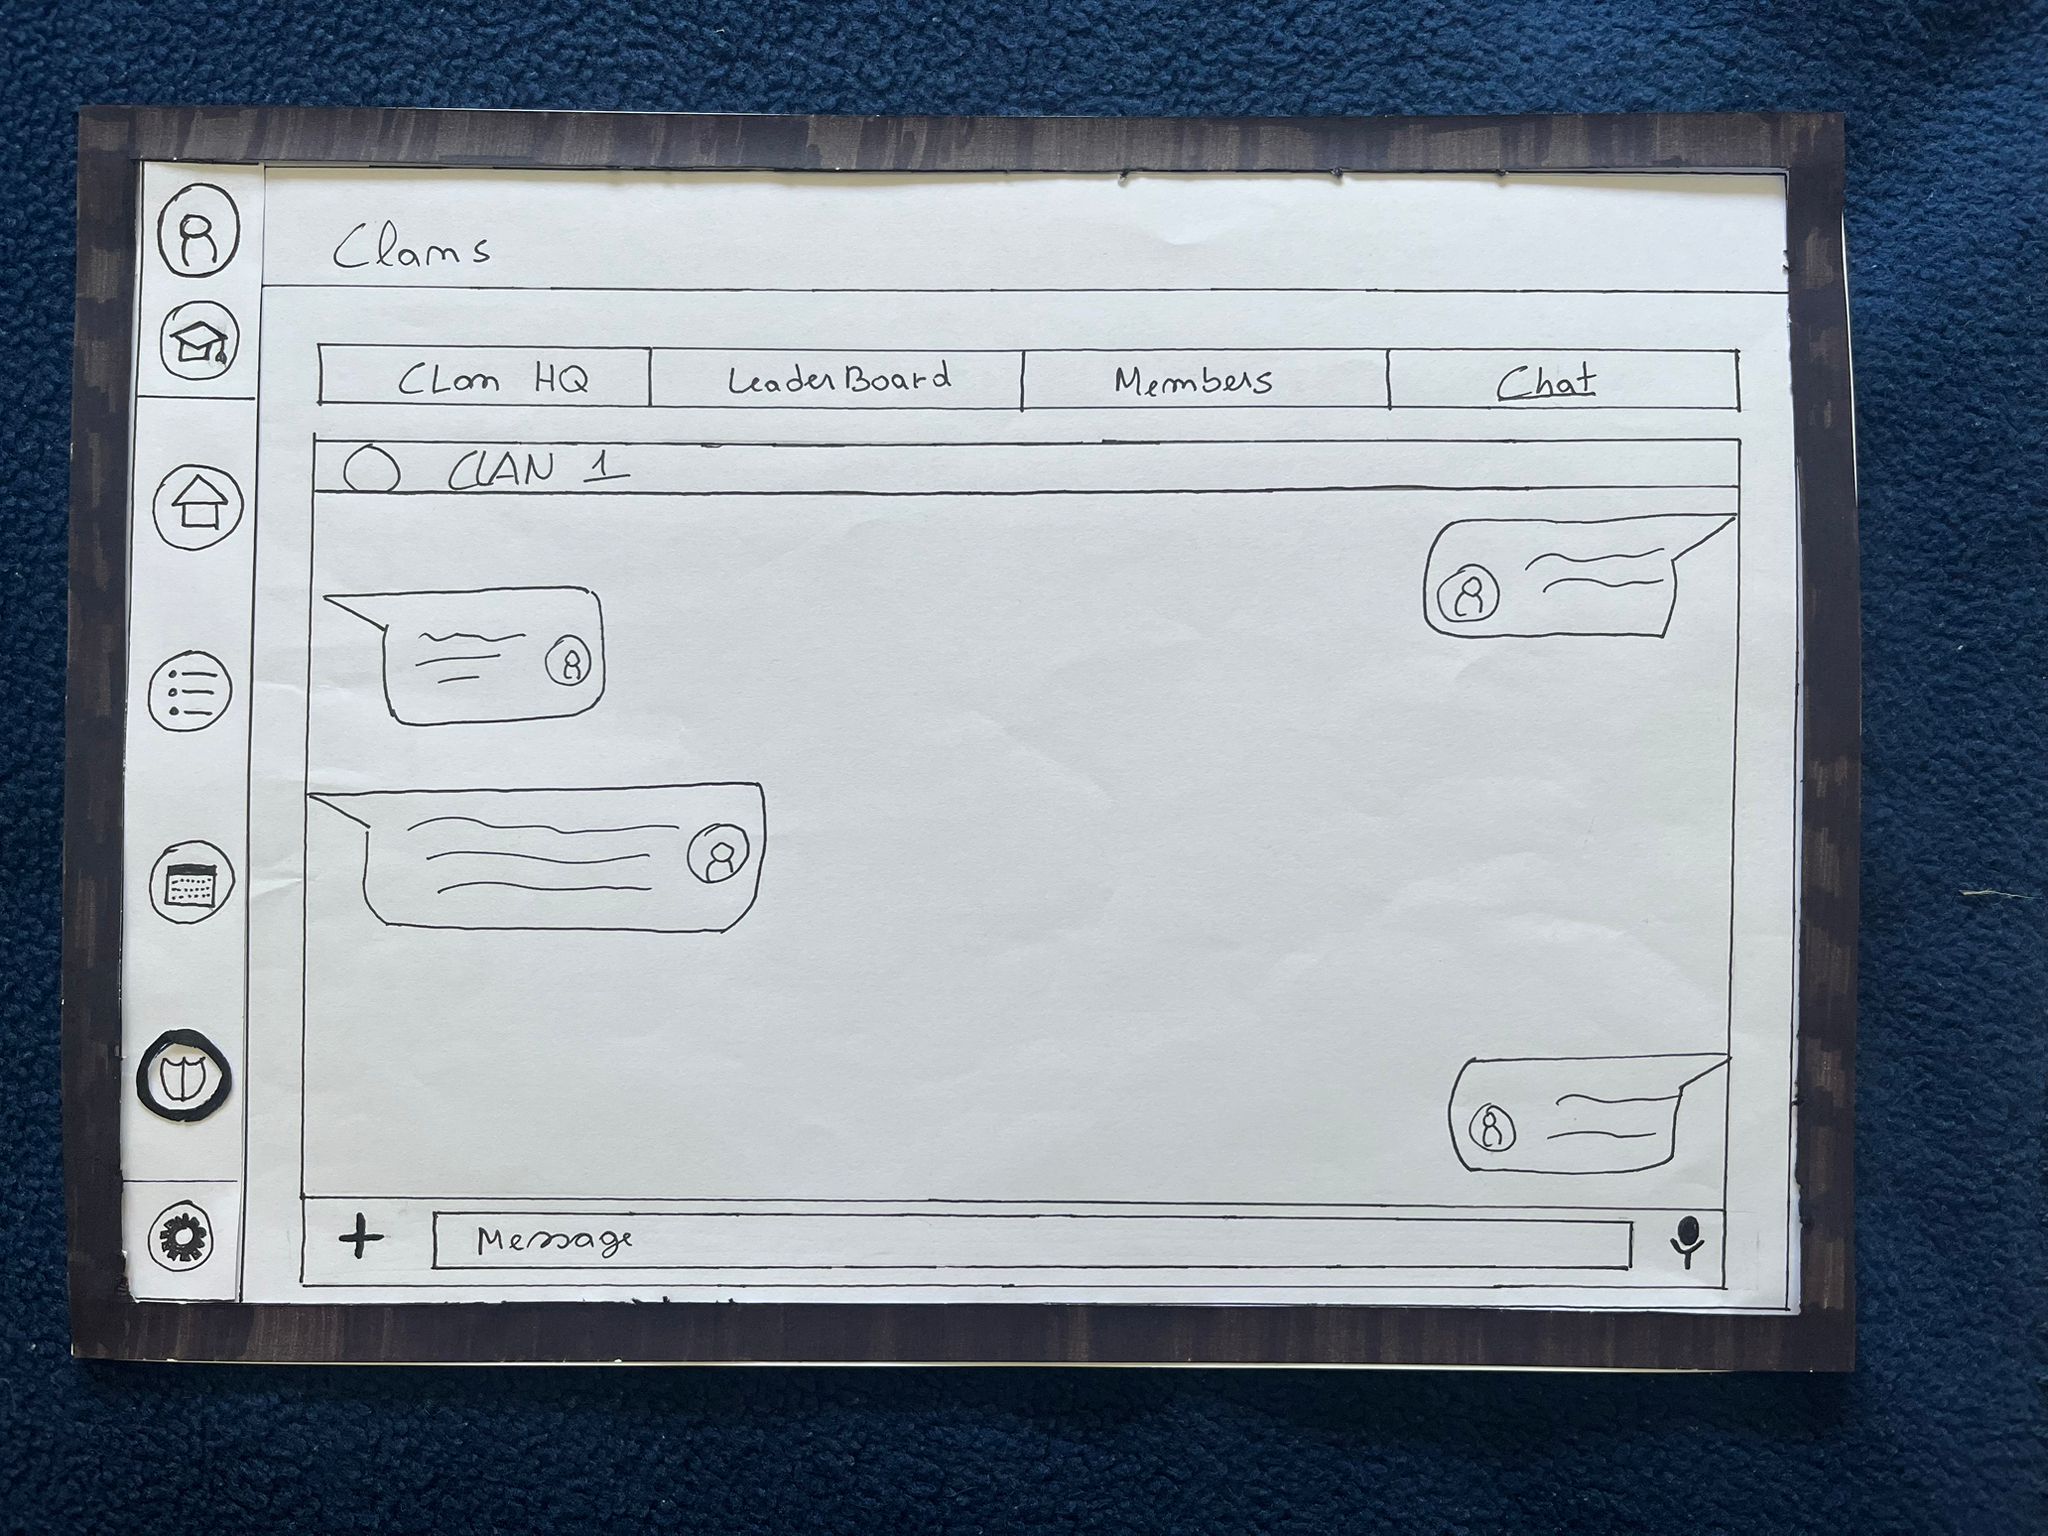 Clans
Clan HQ LeaderBoard Members Chat
CLAN 1
Message